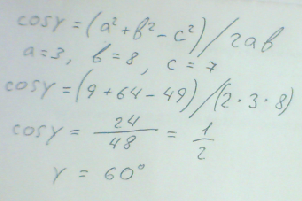 cosγ = (a² + b² - c²) / 2ab
a = 3, b = 8, c = 7
cosγ = (9 + 64 - 49) / (2 · 3 · 8)
cosγ = 24/48 = 1/2
γ = 60°